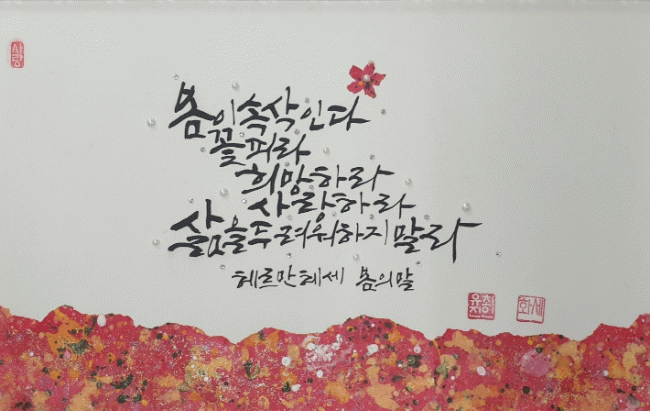 사랑
봄이 속삭인다
꽃피라
희망하라
사랑하라
삶을 두려워하지 말라
헤르만 헤세 봄의 말